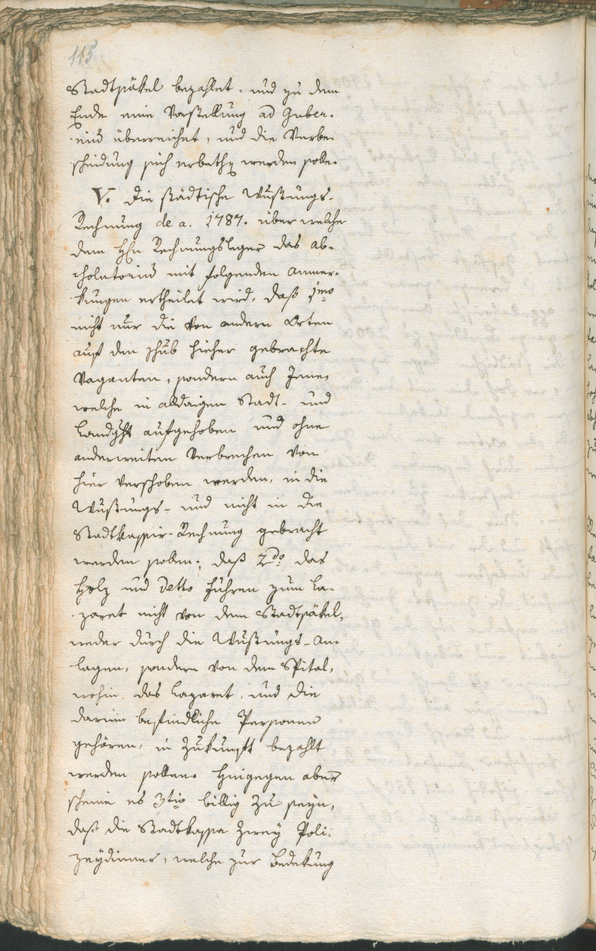 115
Stadtsäkel bezahlet, und zu dem
Ende eine Vorstellung ad Guber-
nium überreichet, und die Verbe-
scheidung sich erbethen werden solle.
V. Die städtische Wustungs-
Rechnung de a. 1787. über welche
dem H: Rechnungsleger das ab-
solutorium mit folgenden Anmer-
kungen ertheilet wird, daß 1mo
nicht nur die von andern Orten
auf den Schub hieher gebrachte
Vaganten, sondern auch Jene,
welche in alldaigen Stadt- und
Landght aufgehoben und ohne
anderweiten Verbrechen von
hier verschoben werden, in die
Wustungs- und nicht in die
Stadtkassir-Rechnung gebracht
werden sollen; daß 2do das
Holz und detto Führen zum La-
zaret nicht von dem Stadtsäkel,
weder durch die Wustungs-An-
lagen, sondern von dem Spital,
wohin das Lazaret, und die
darinn befindliche Personen
gehören, in Zukunft bezahlt
werden sollen. Hingegen aber
scheine es 3tio billig zu seyn,
daß die Stadtkassa zwey Poli-
zeydiener, welche zur Bedekung